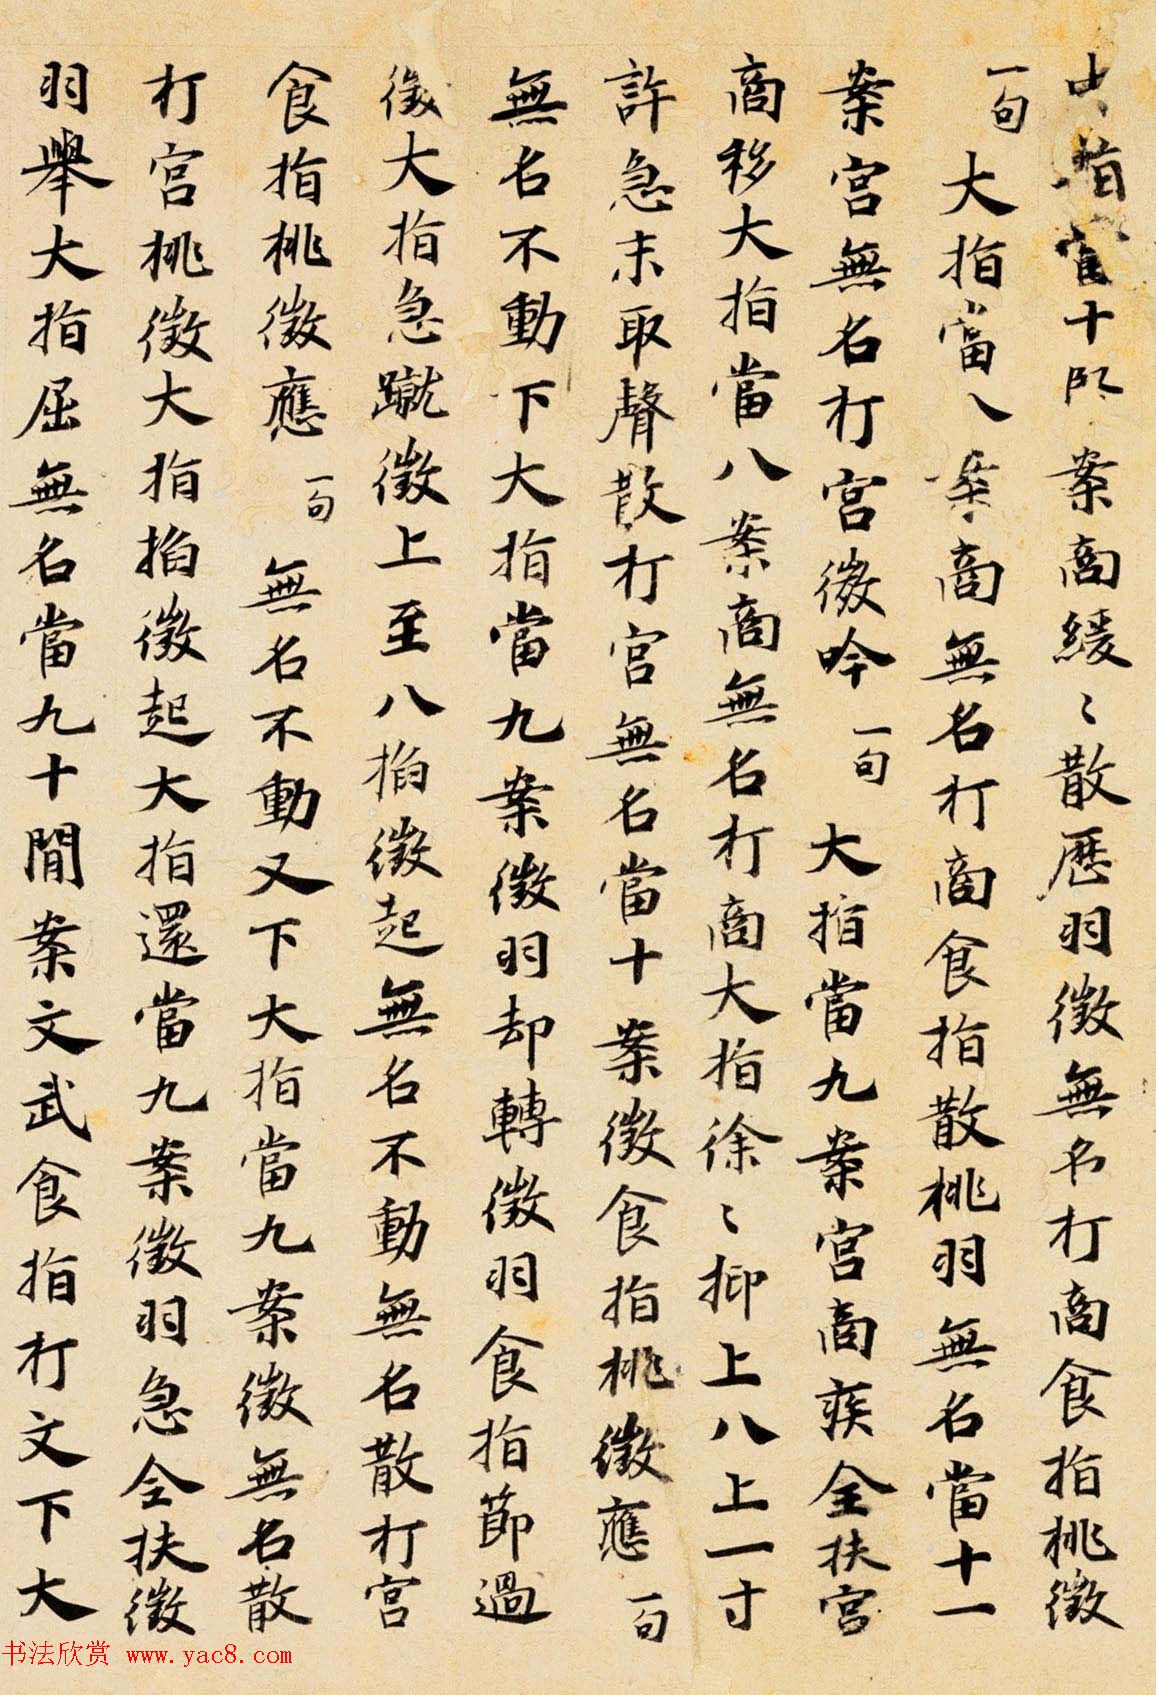 中指當十一案商緩〻散歷羽徵無名打商食指挑徵
一句大指當八案商無名打商食指散挑羽無名當十一
案宮無名打宮徵吟一句大指當九案宮商疾全扶宮
商移大指當八案商無名打商大指徐〻抑上八上一寸
許急末取聲散打宮無名當十案徵食指挑徵應一句
無名不動下大指當九案徵羽却轉徵羽食指節過
徵大指急蹴徵上至八掐徵起無名不動無名散打宮
食指挑徵應一句無名不動又下大指當九案徵無名散
打宮挑徵大指掐徵起大指還當九案徵羽急全扶徵
羽舉大指屈無名當九十間案文武食指打文下大
书法欣赏 www.yac8.com